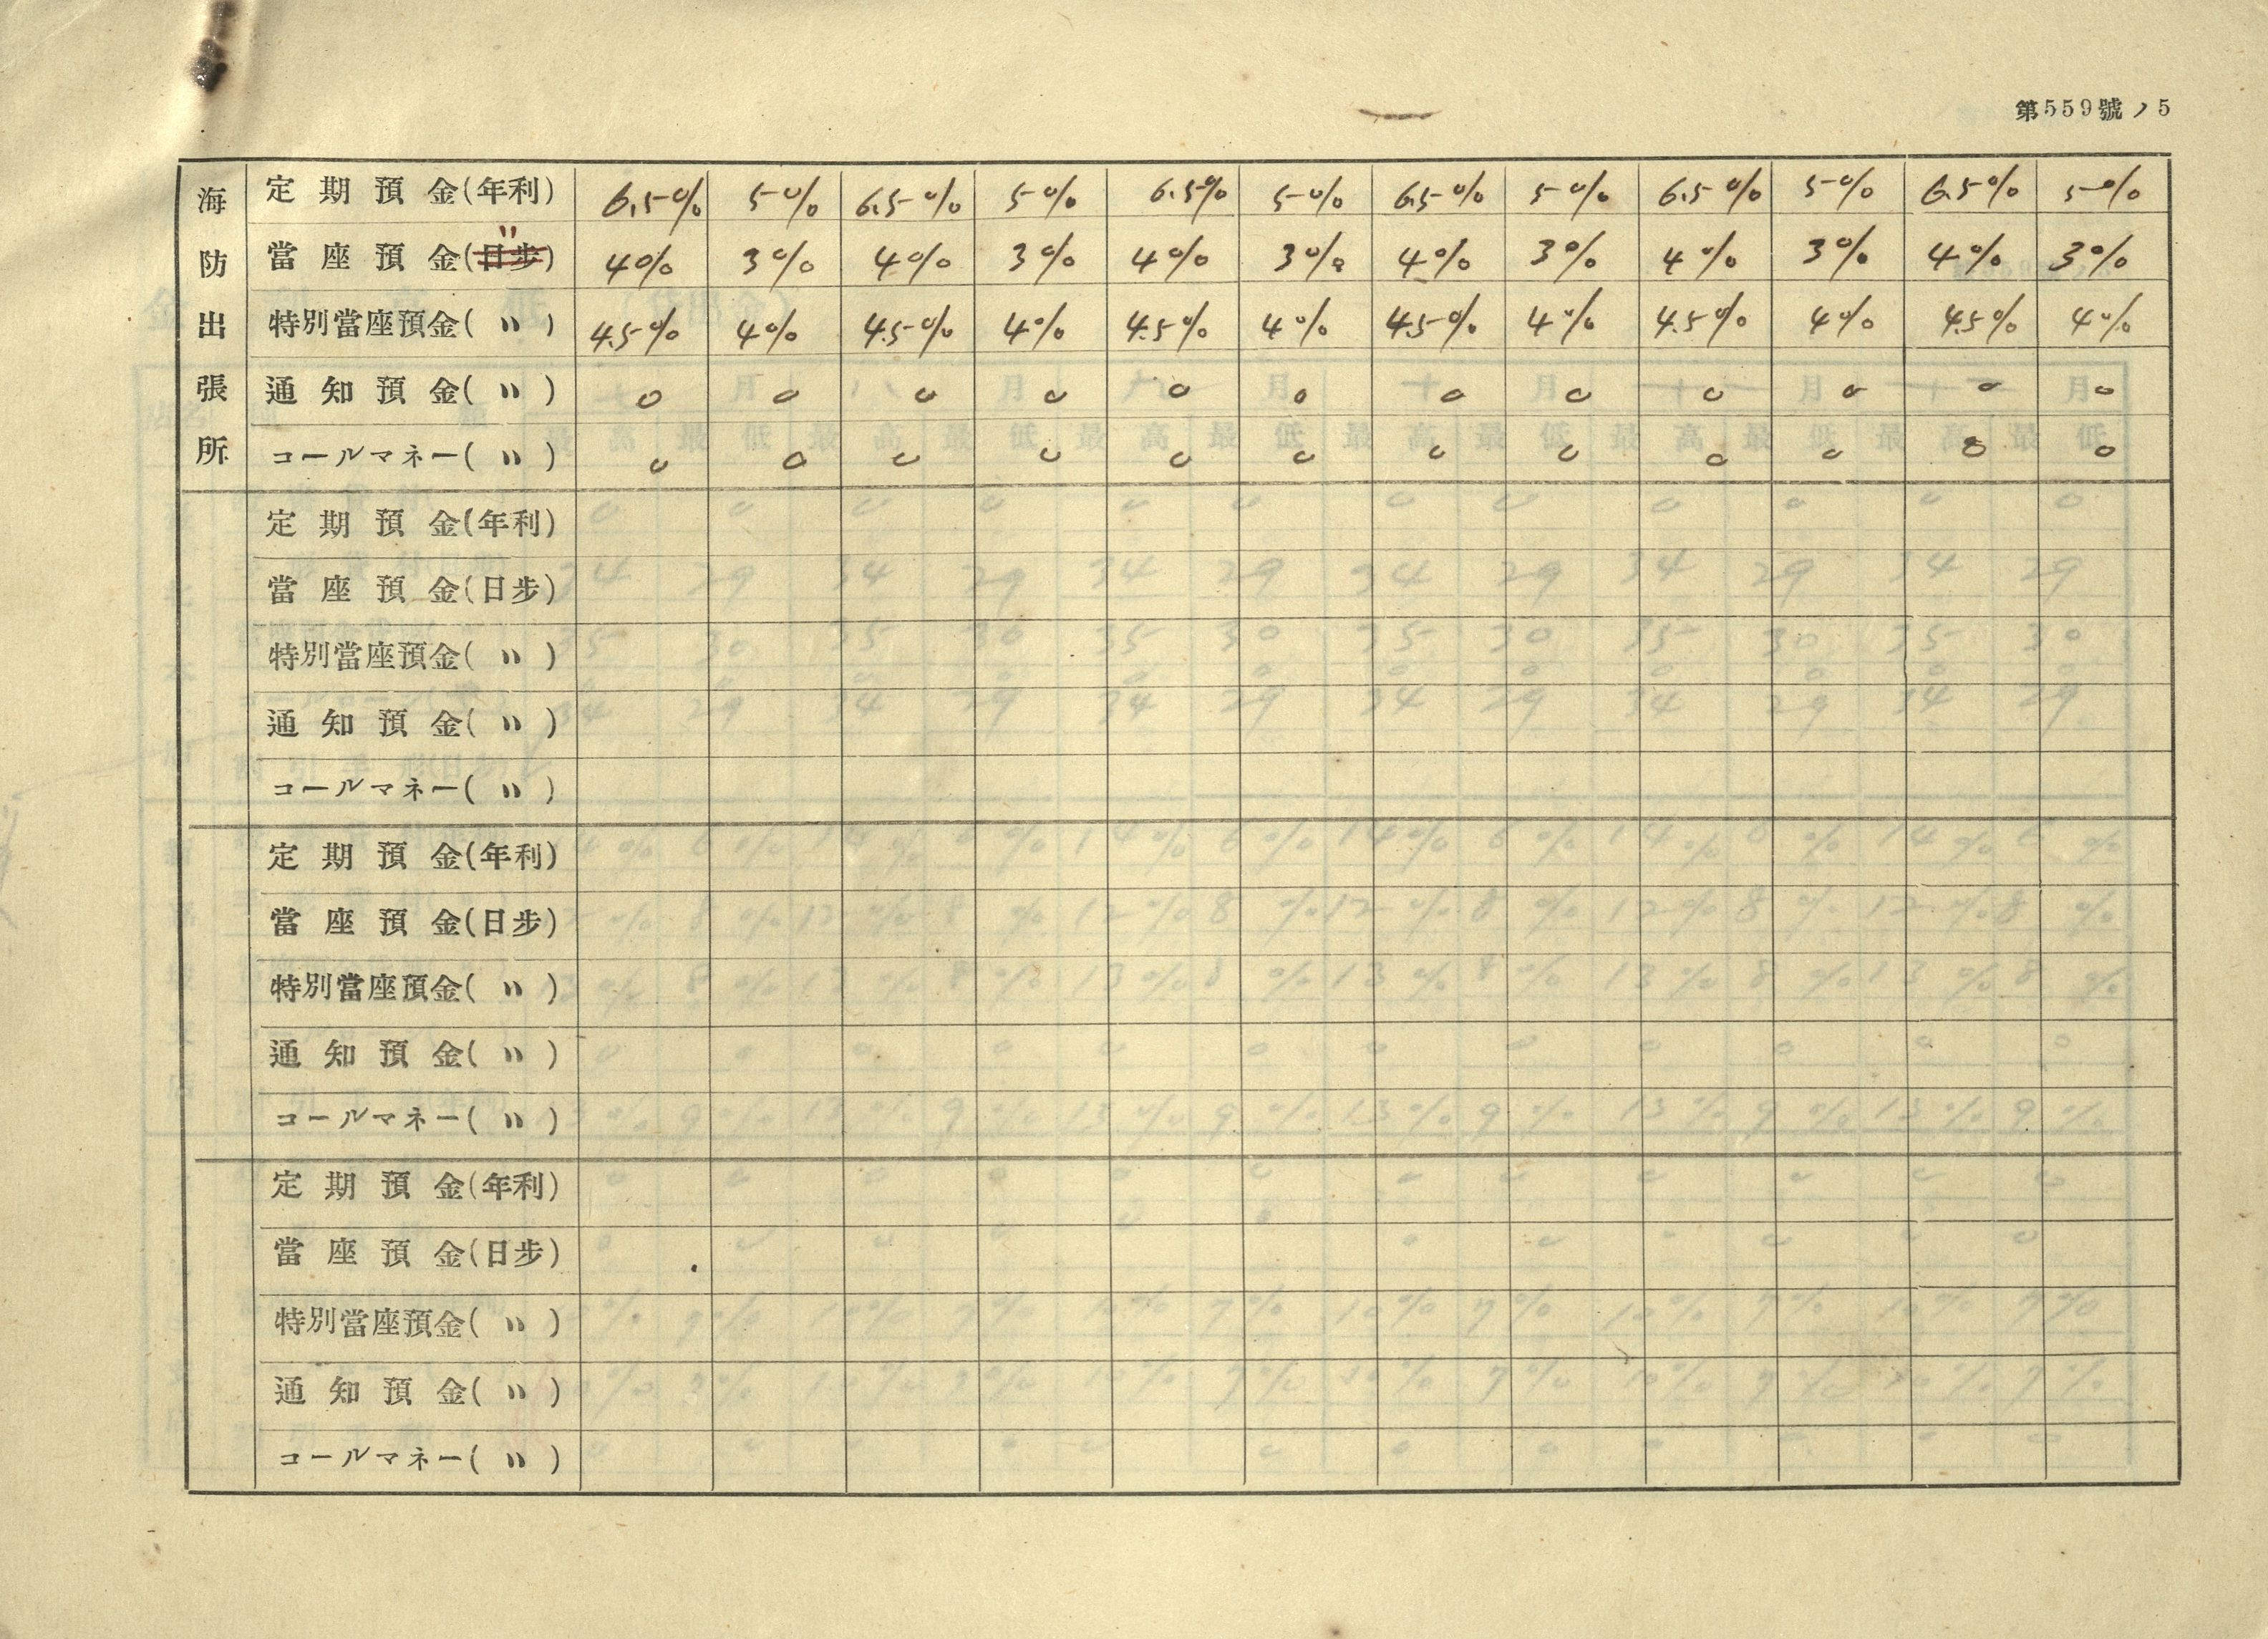 第559號ノ5
海防出張所
定期預金(年利) 6.5% 5% 6.5% 5% 6.5% 5% 6.5% 5% 6.5% 5% 6.5% 5%
當座預金(日步) 〃 4% 3% 4% 3% 4% 3% 4% 3% 4% 3% 4% 3%
特別當座預金(〃) 4.5% 4% 4.5% 4% 4.5% 4% 4.5% 4% 4.5% 4% 4.5% 4%
通知預金(〃) 0 0 0 0 0 0 0 0 0 0 0 0
コールマネー(〃) 0 0 0 0 0 0 0 0 0 0 0 0
定期預金(年利)
當座預金(日步)
特別當座預金(〃)
通知預金(〃)
コールマネー(〃)
定期預金(年利)
當座預金(日步)
特別當座預金(〃)
通知預金(〃)
コールマネー(〃)
定期預金(年利)
當座預金(日步)
特別當座預金(〃)
通知預金(〃)
コールマネー(〃)